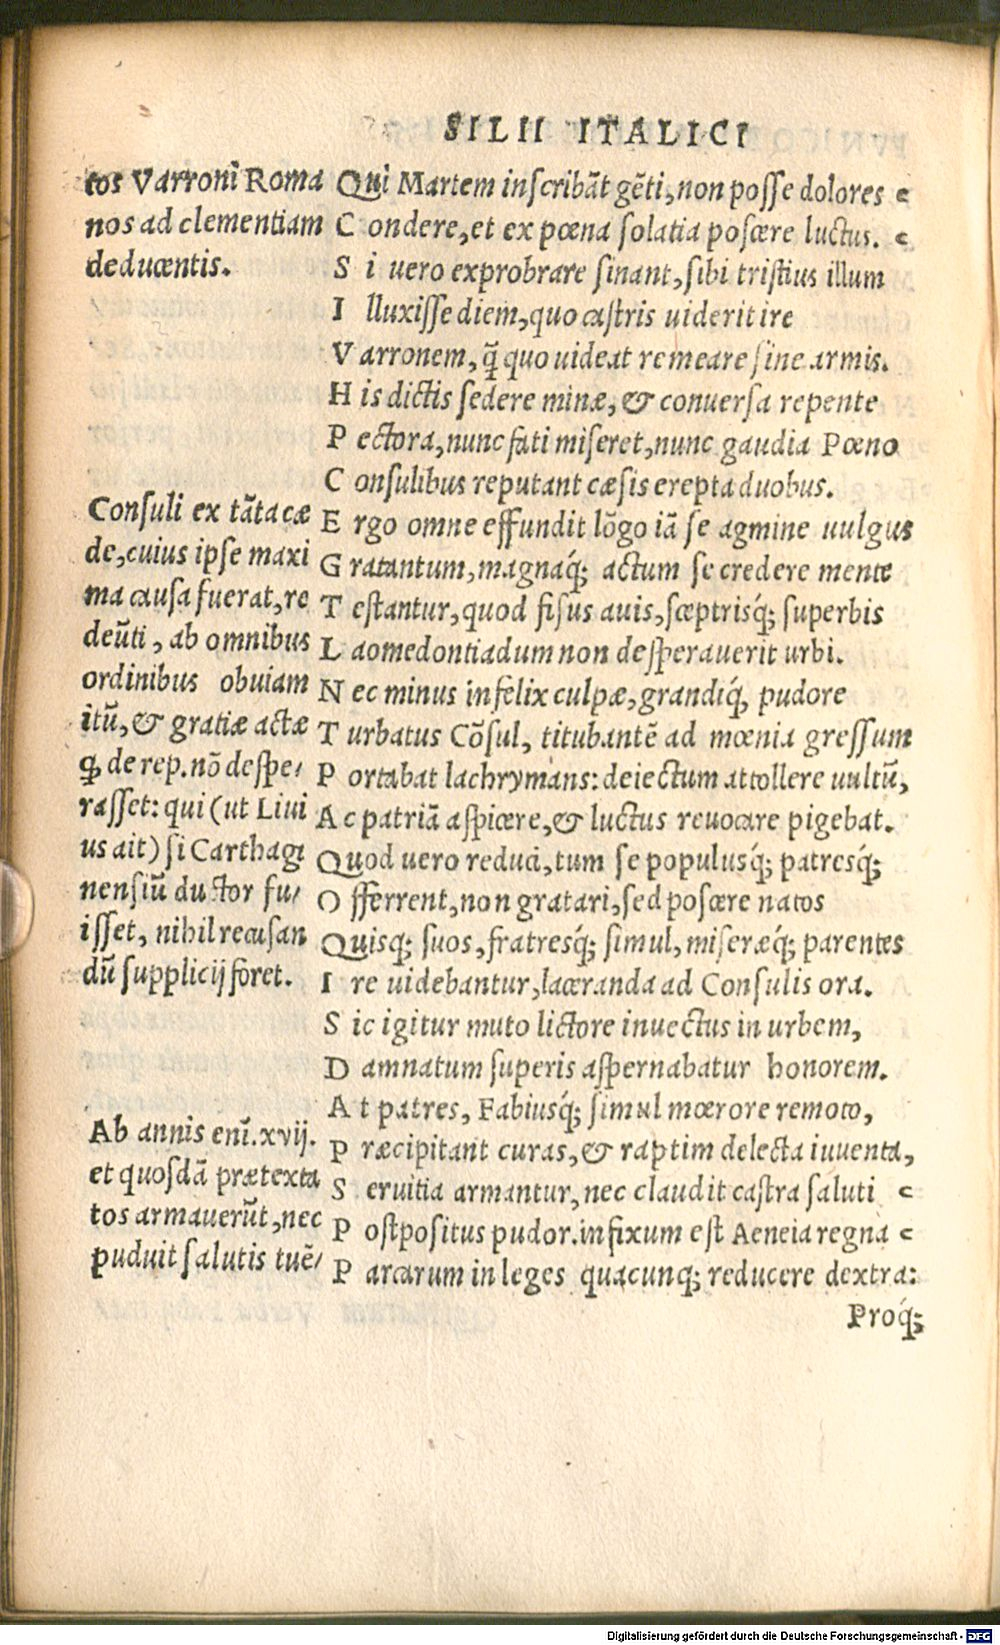 SILII ITALICI
tos Varroni Roma
nos ad clementiam
deducentis.
Consuli ex tãta cæ
de, cuius ipse maxi
ma causa fuerat, re
deũti, ab omnibus
ordinibus obuiam
itũ, & gratiæ actæ
ꝙ de rep. nõ despe/
rasset: qui (ut Liui
us ait) si Carthagi
nensiũ ductor fu/
isset, nihil recusan
dũ supplicij foret.
Ab annis enĩ. xvij.
et quosdã prætexta
tos armauerũt, nec
puduit salutis tuẽ/
Qui Martem inscribãt gẽti, non posse dolores
Condere, et ex pœna solatia poscere luctus.
Si uero exprobrare sinant, sibi tristius illum
Illuxisse diem, quo castris uiderit ire
Varronem, q̃ quo uideat remeare sine armis.
His dictis sedere minæ, & conuersa repente
Pectora, nunc fati miseret, nunc gaudia Pœno
Consulibus reputant cæsis erepta duobus.
Ergo omne effundit lõgo iã se agmine uulgus
Gratantum, magnaq́; actum se credere mente
Testantur, quod fisus auis, sceptrisq́; superbis
Laomedontiadum non desperauerit urbi.
Nec minus infelix culpæ, grandiq́, pudore
Turbatus Cõsul, titubantẽ ad mœnia gressum
Portabat lachrymans: deiectum attollere uultũ,
Ac patriã aspicere, & luctus reuocare pigebat.
Quod uero reduci, tum se populusq́; patresq́;
Offerrent, non gratari, sed poscere natos
Quisq; suos, fratresq́; simul, miseræq́; parentes
Ire uidebantur, laceranda ad Consulis ora.
Sic igitur muto lictore inuectus in urbem,
Damnatum superis aspernabatur honorem.
At patres, Fabiusq́; simul mœrore remoto,
Præcipitant curas, & raptim delecta iuuenta,
Seruitia armantur, nec claudit castra saluti
Postpositus pudor. infixum est Aeneia regna
Parcarum in leges quacunq; reducere dextra:
Proq́;
Digitalisierung gefördert durch die Deutsche Forschungsgemeinschaft - DFG